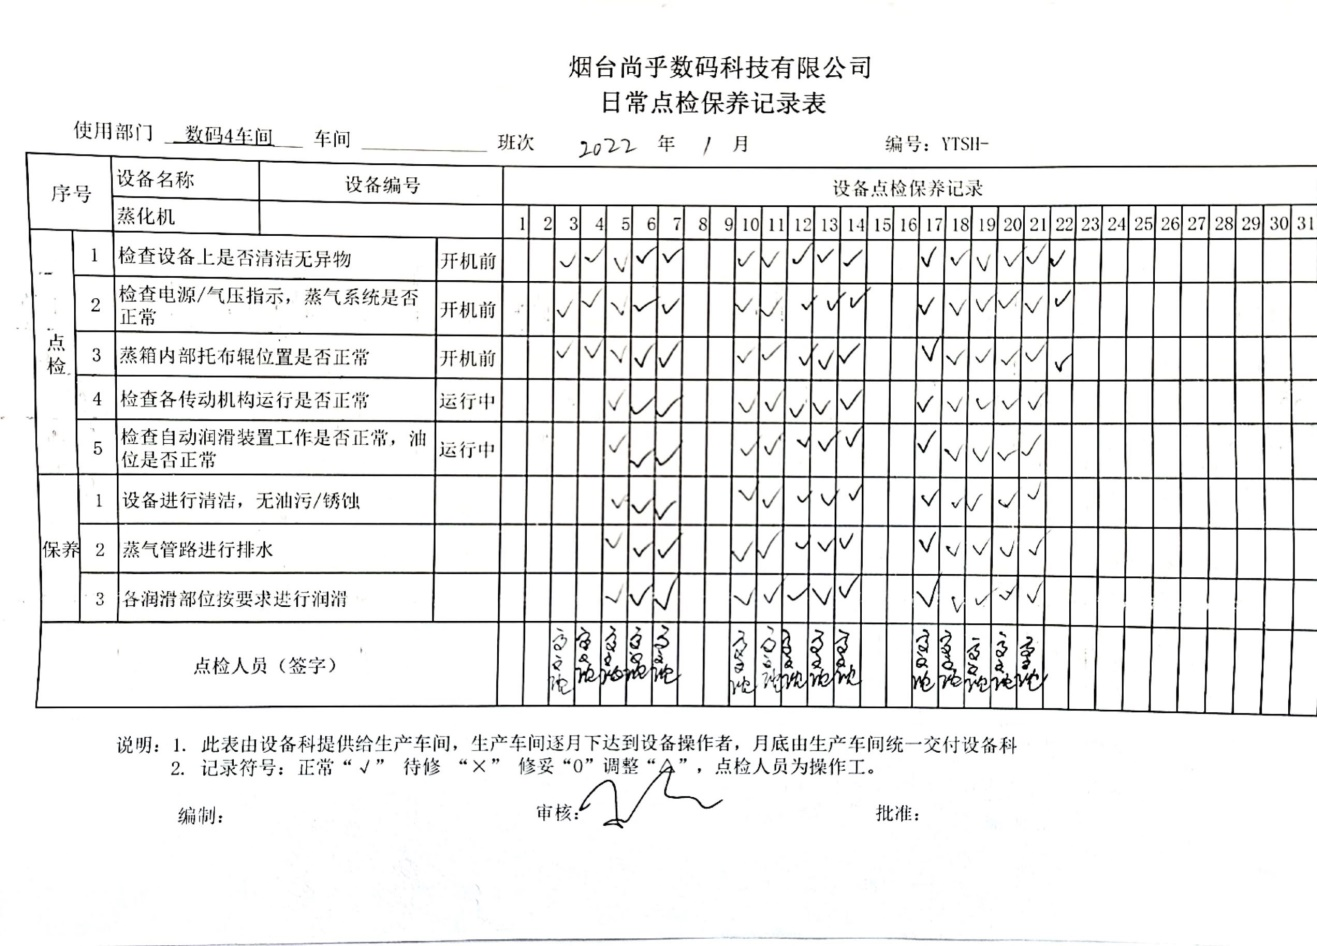 烟台尚乎数码科技有限公司
日常点检保养记录表
使用部门 数码4车间 车间 班次 2022 年 1 月 编号：YTSH-
序号 设备名称 设备编号 设备点检保养记录
蒸化机 1 2 3 4 5 6 7 8 9 10 11 12 13 14 15 16 17 18 19 20 21 22 23 24 25 26 27 28 29 30 31
点检
1 检查设备上是否清洁无异物 开机前 ✓ ✓ ✓ ✓ ✓ ✓ ✓ ✓ ✓ ✓ ✓ ✓ ✓ ✓ ✓ ✓
2 检查电源/气压指示，蒸气系统是否
正常 开机前 ✓ ✓ ✓ ✓ ✓ ✓ ✓ ✓ ✓ ✓ ✓ ✓ ✓ ✓ ✓ ✓
3 蒸箱内部托布辊位置是否正常 开机前 ✓ ✓ ✓ ✓ ✓ ✓ ✓ ✓ ✓ ✓ ✓ ✓ ✓ ✓ ✓ ✓
4 检查各传动机构运行是否正常 运行中 ✓ ✓ ✓ ✓ ✓ ✓ ✓ ✓ ✓ ✓ ✓ ✓ ✓
5 检查自动润滑装置工作是否正常，油
位是否正常 运行中 ✓ ✓ ✓ ✓ ✓ ✓ ✓ ✓ ✓ ✓ ✓ ✓ ✓
保养
1 设备进行清洁，无油污/锈蚀 ✓ ✓ ✓ ✓ ✓ ✓ ✓ ✓ ✓ ✓ ✓ ✓ ✓
2 蒸气管路进行排水 ✓ ✓ ✓ ✓ ✓ ✓ ✓ ✓ ✓ ✓ ✓ ✓ ✓
3 各润滑部位按要求进行润滑 ✓ ✓ ✓ ✓ ✓ ✓ ✓ ✓ ✓ ✓ ✓ ✓ ✓
点检人员（签字）
说明：1. 此表由设备科提供给生产车间，生产车间逐月下达到设备操作者，月底由生产车间统一交付设备科
2. 记录符号：正常“√” 待修 “×” 修妥“O”调整“△”，点检人员为操作工。
编制： 审核： 批准：